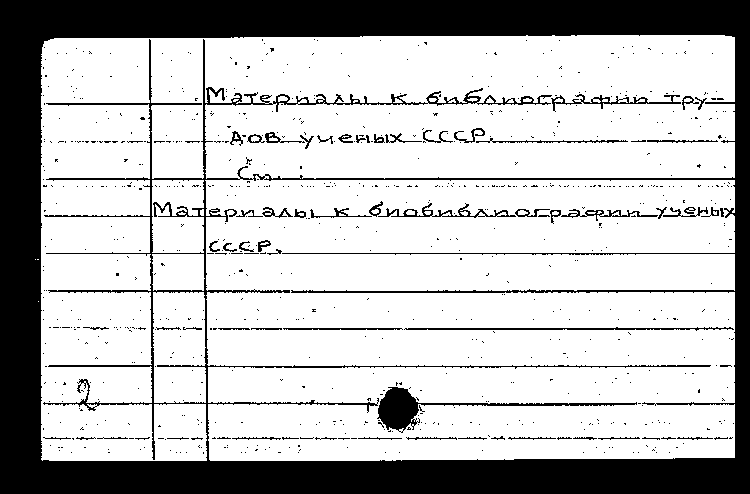 Материалы к библиографии тру-
дов ученых СССР.
См. :
Материалы к биобиблиографии ученых
СССР.
2